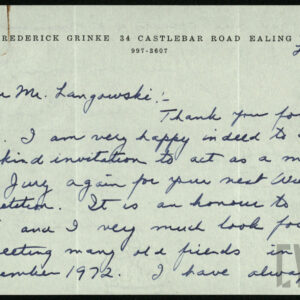 FREDERICK GRINKE 34 CASTLEBAR ROAD EALING
997-3607
Mr. Langowski:-
Thank you for
I am very happy indeed to
kind invitation to act as a m
Jury again for your next
etition. It is an honour to
and I very much look fo
eeting many old friends in
ember 1972. I have alwa